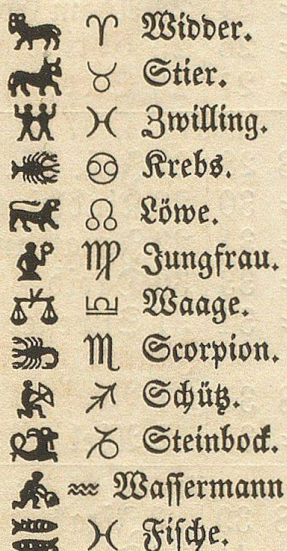 ♈ Widder.
♉ Stier.
♓ Zwilling.
♋ Krebs.
♌ Löwe.
♍ Jungfrau.
♎ Waage.
♏ Scorpion.
♐ Schütz.
♑ Steinbock.
♒ Wassermann
♓ Fische.